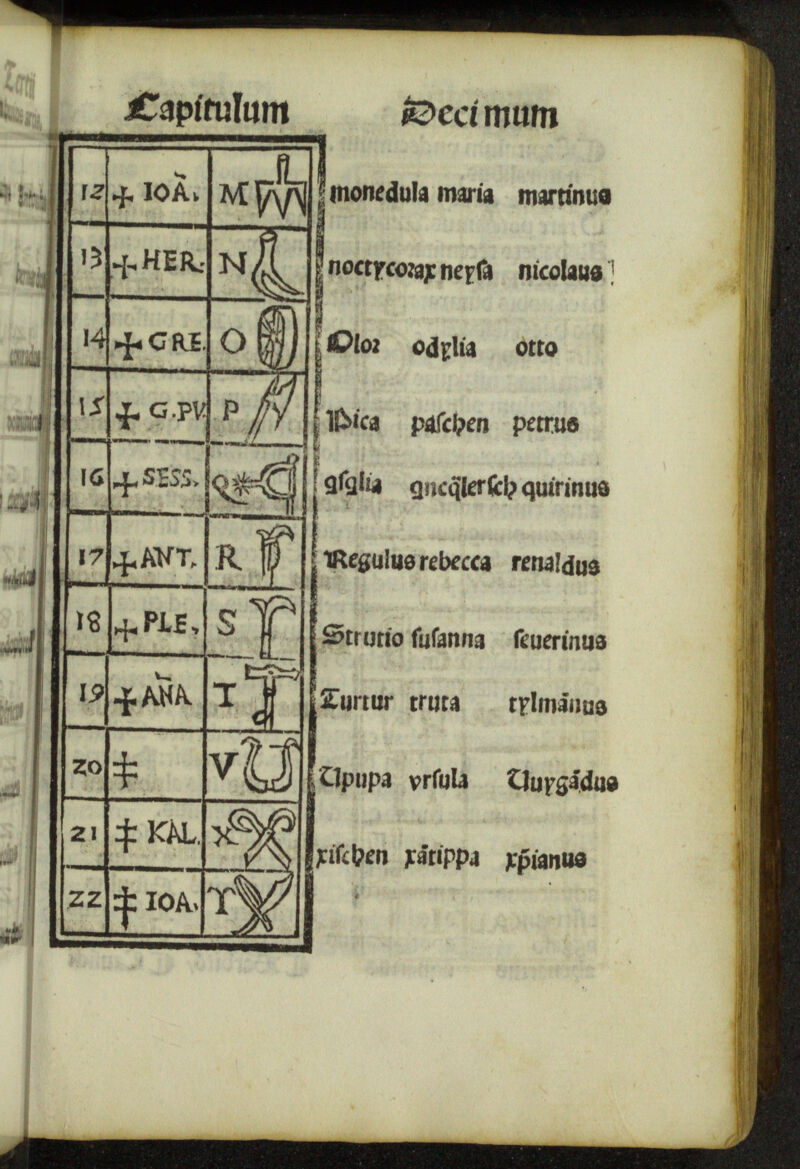 Capitulum Decimum
12 ‡ IOÃ. M monedula maria martinus
13 ‡ HER. N noctycorax neyſa nicolaus
14 ‡ GRE. O Olor odylia otto
15 ‡ G.PV P Pica paſchen petrus
16 ‡ SESS. Q
17 ‡ ANT. R Regulus rebecca renaldus
18 ‡ PLE, S Strutio ſuſanna ſeuerinus
19 ‡ AÑA T Turtur truta tylmānus
20 ‡ V Upupa vrſula Uuygādus
21 ‡ KAL. X xiſchen xātippa xp̄ianus
22 ‡ IOA. Y